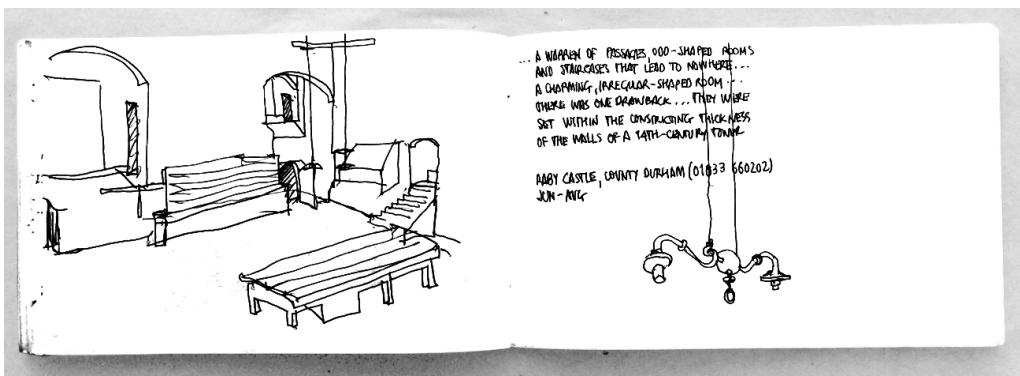 ... A WARREN OF PASSAGES, ODD-SHAPED ROOMS
AND STAIRCASES THAT LEAD TO NOWHERE...
A CHARMING, IRREGULAR-SHAPED ROOM...
THERE WAS ONE DRAWBACK... THEY WERE
SET WITHIN THE CONSTRICTING THICKNESS
OF THE WALLS OF A 14TH-CENTURY TOWER
RABY CASTLE, COUNTY DURHAM (01833 660202)
JUN-AUG